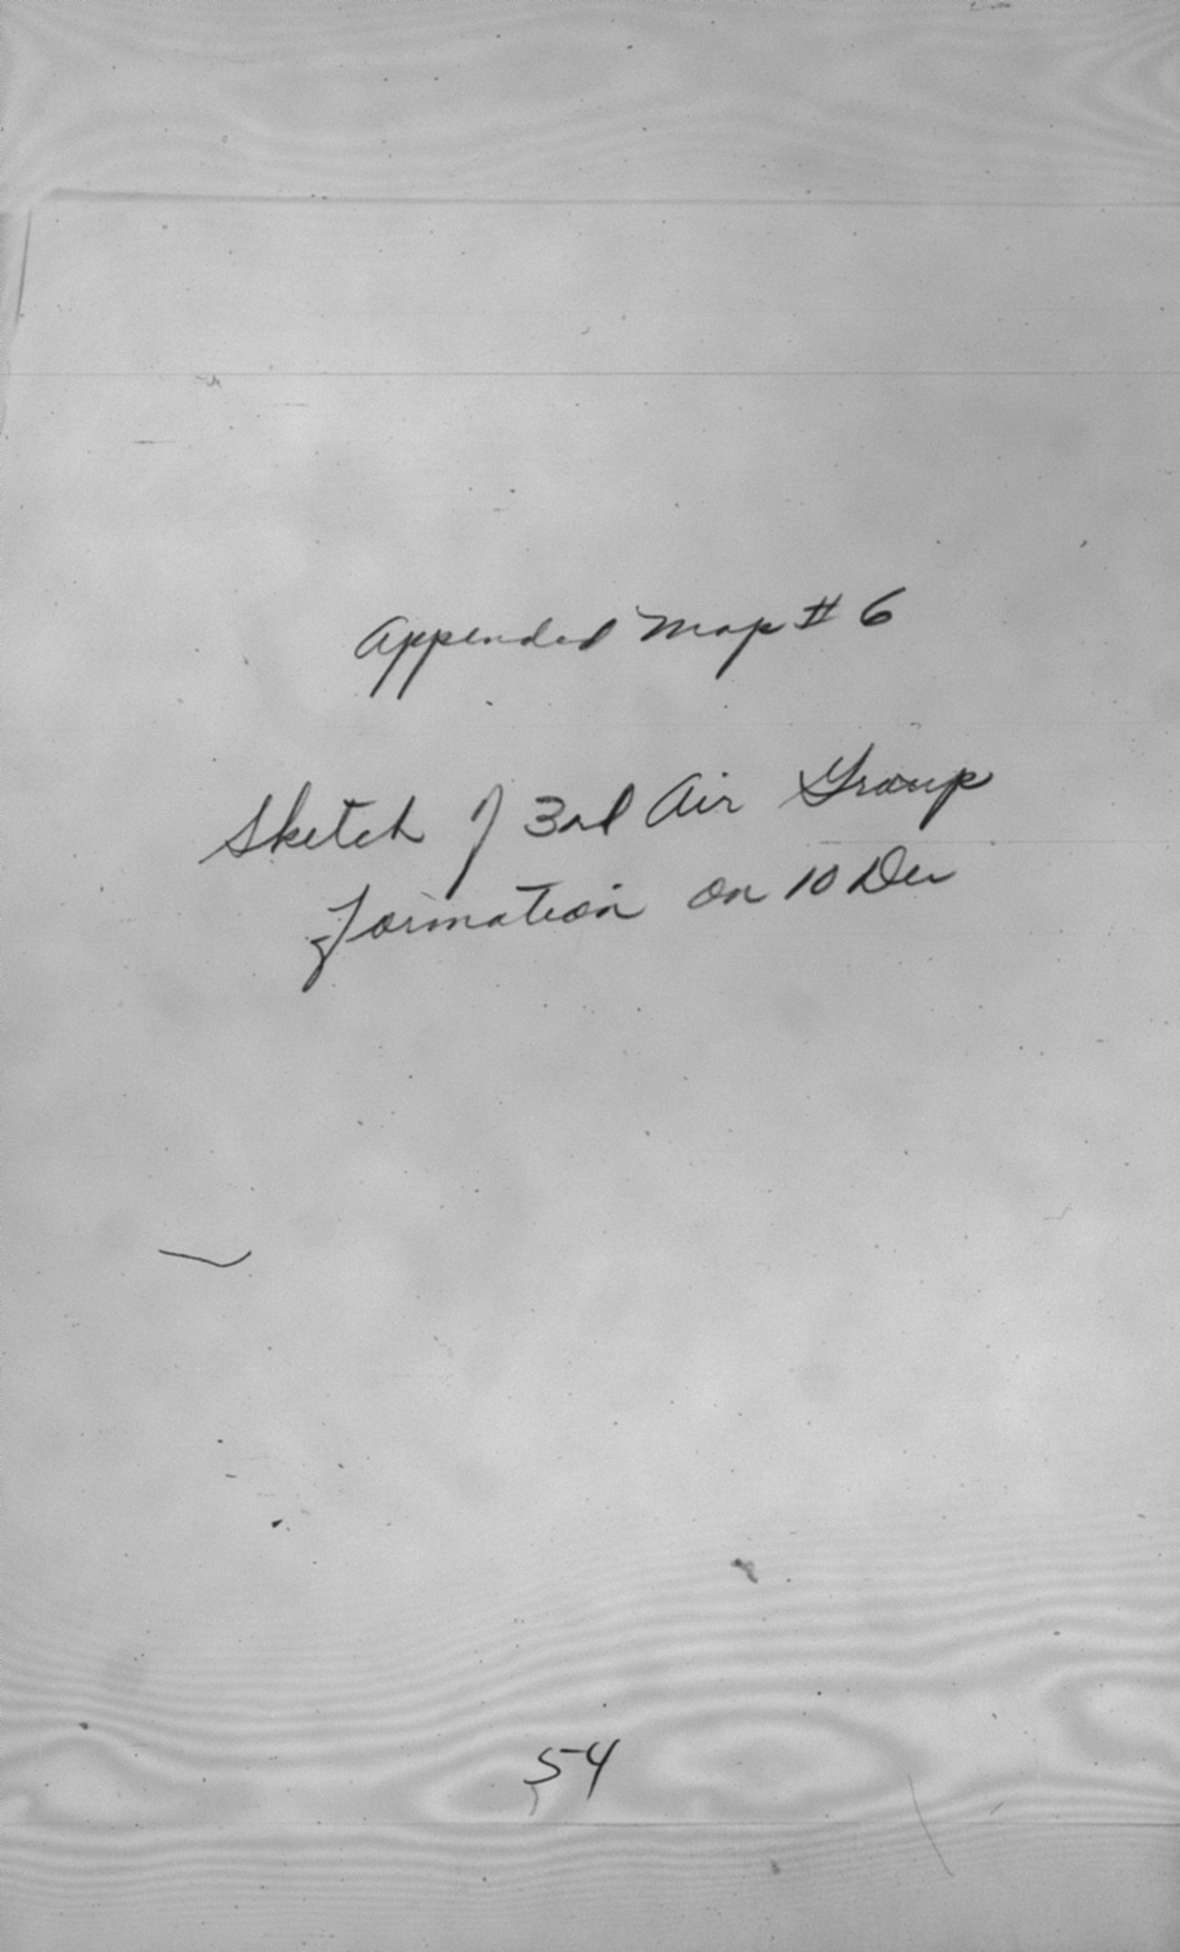 Appended Map # 6
Sketch of 3rd Air Group
Formation on 10 Dec
54